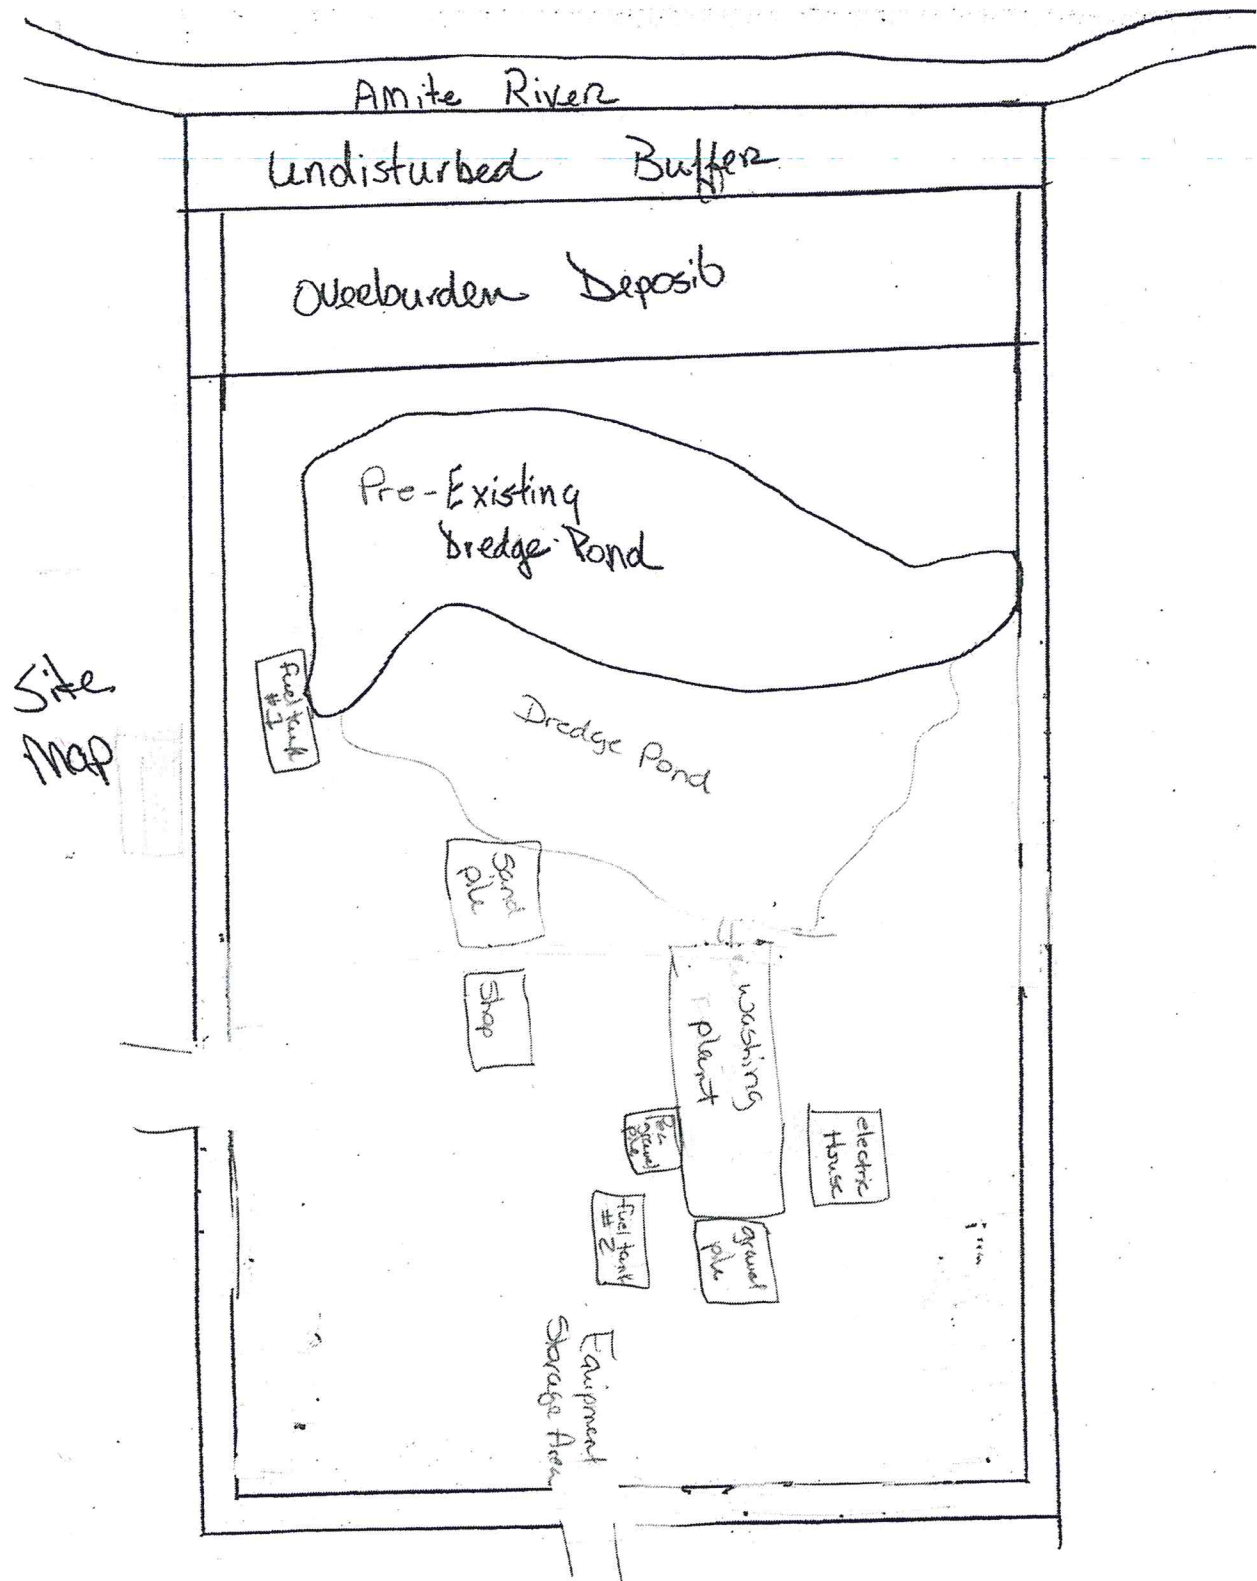 Amite River
Undisturbed Buffer
Overburden Deposit
Pre-Existing
Dredge Pond
Site
Map
fuel tank
#1
Dredge Pond
Sand
pile
Shop
washing
plant
Pea
gravel
pile
electric
House
fuel tank
#2
gravel
pile
Equipment
Storage Area